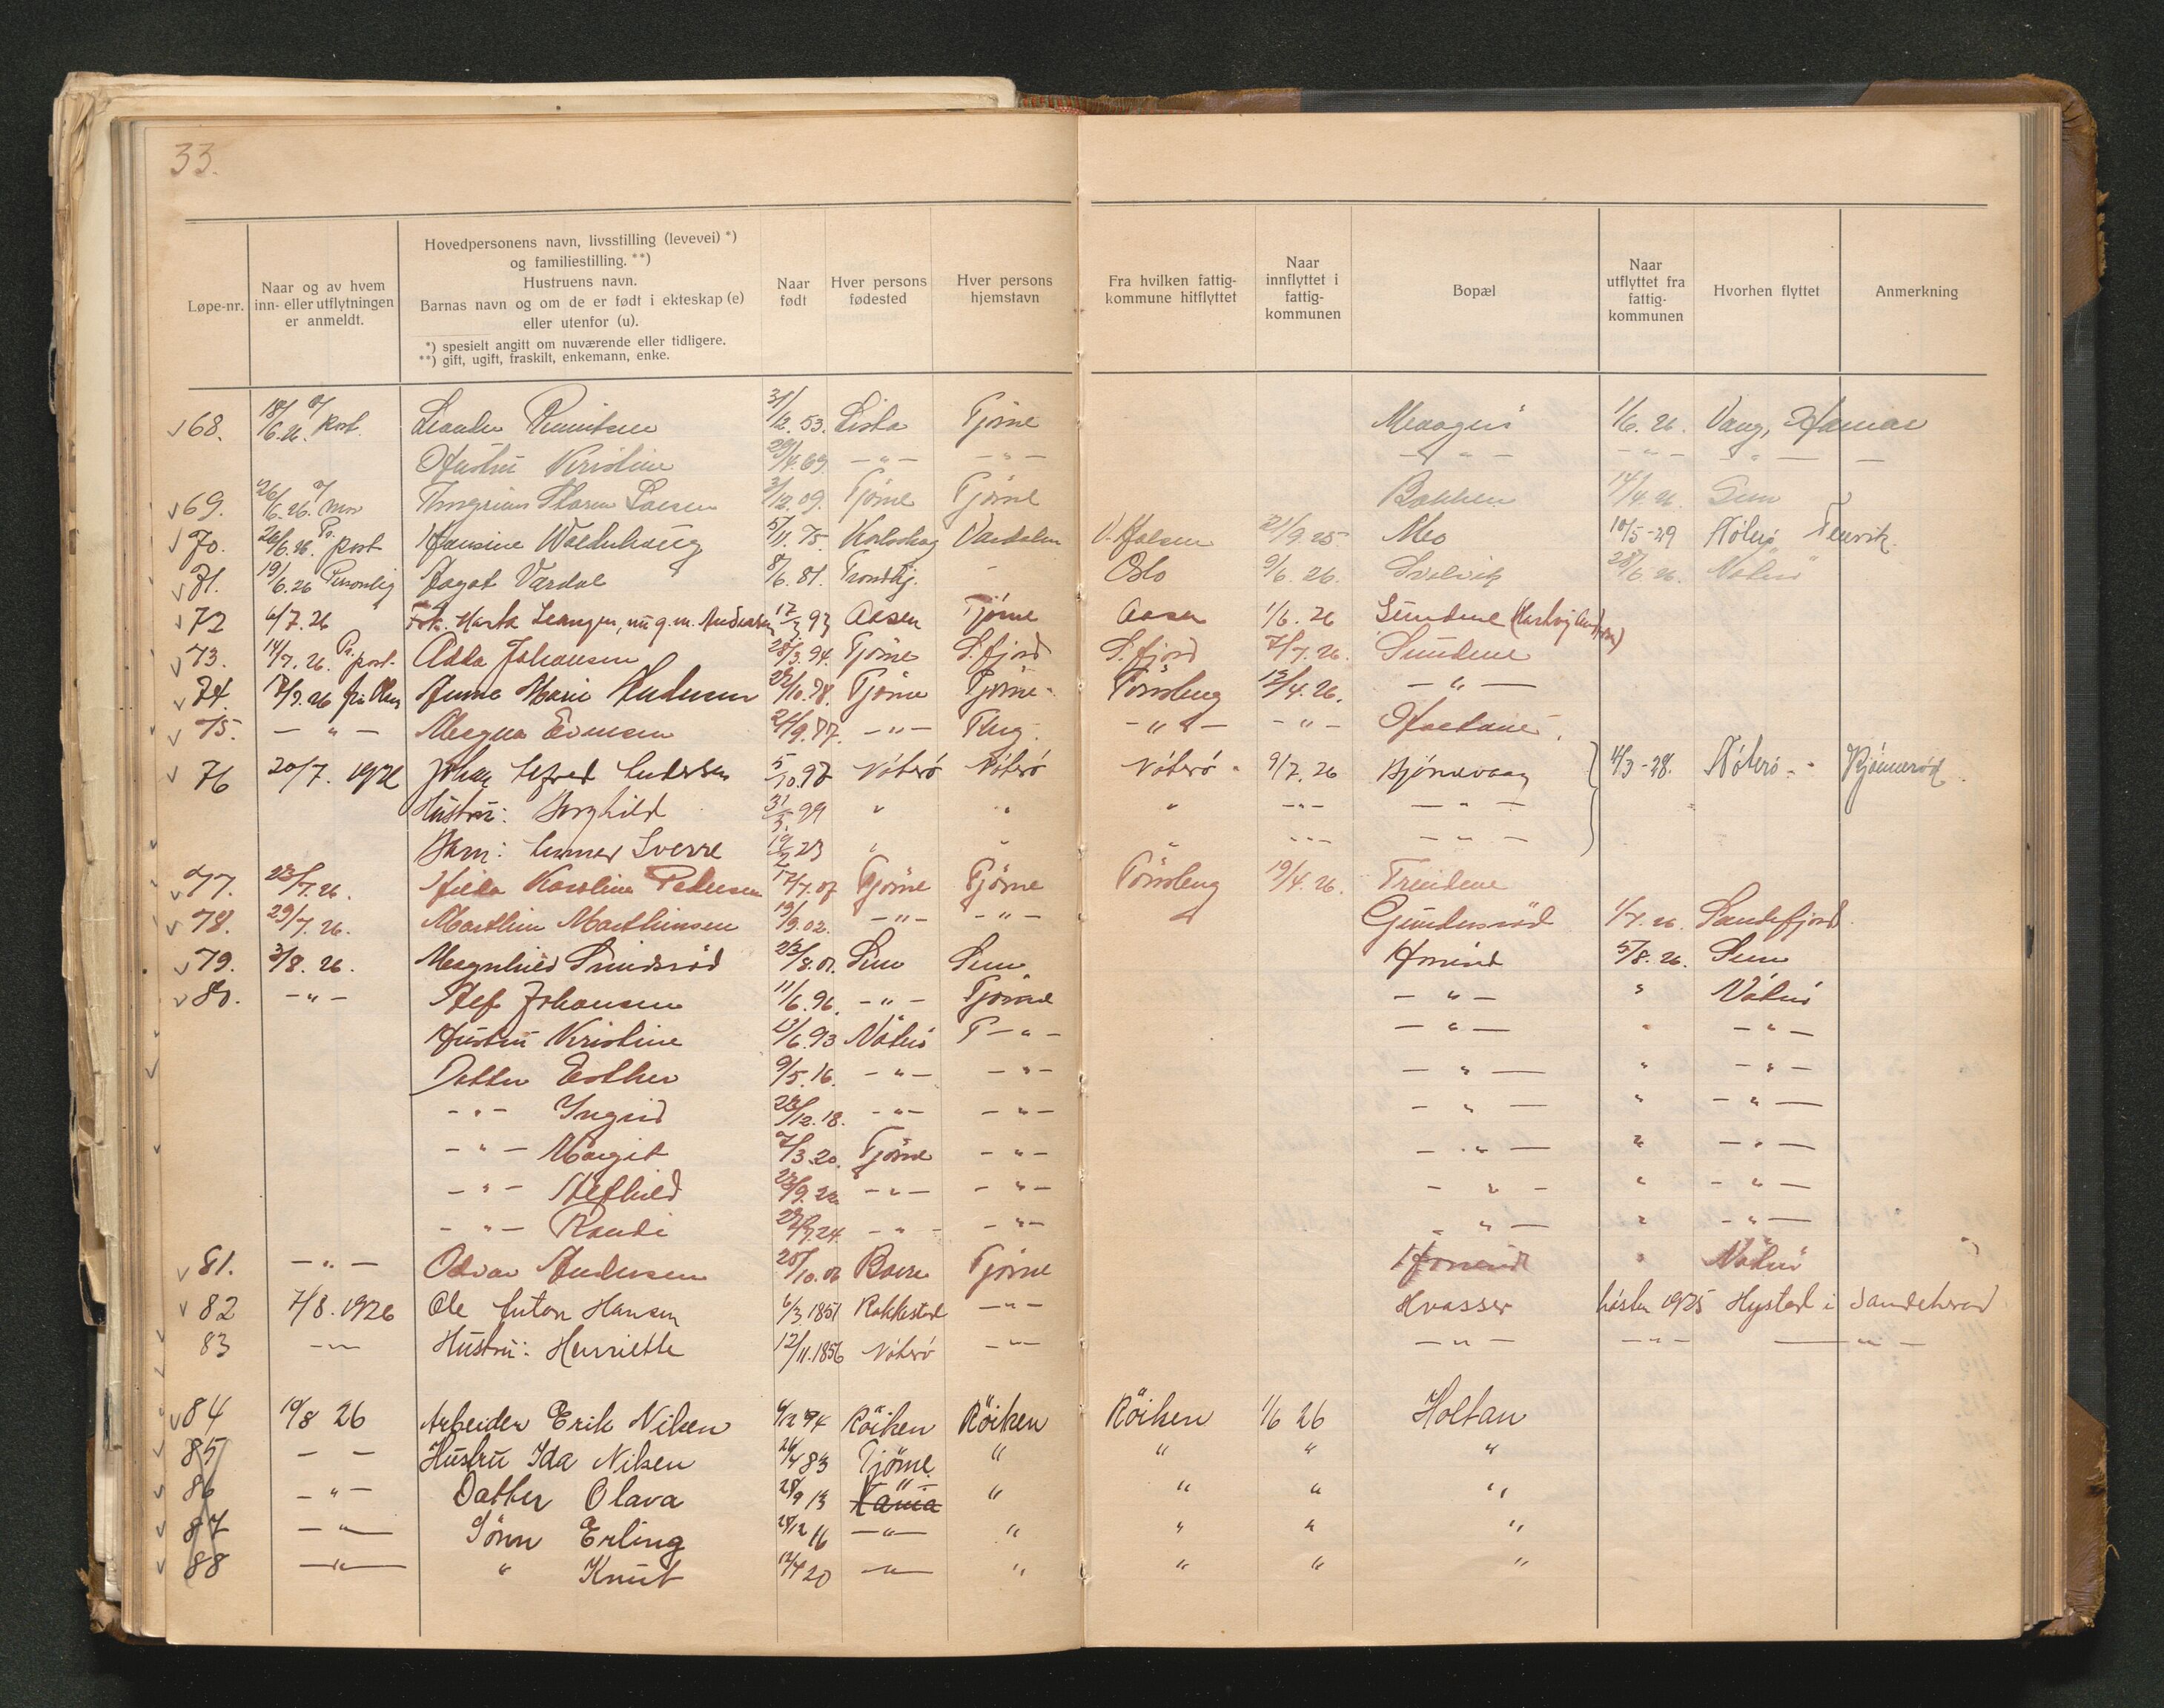 33.
Løpe-nr.
Naar og av hvem
inn- eller utflytningen
er anmeldt.
Hovedpersonens navn, livsstilling (levevei) *)
og familiestilling. **)
Hustruens navn.
Barnas navn og om de er født i ekteskap (e)
eller utenfor (u).
*) spesielt angitt om nuværende eller tidligere.
**) gift, ugift, fraskilt, enkemann, enke.
Naar
født
Hver persons
fødested
Hver persons
hjemstavn
Fra hvilken fattig-
kommune hitflyttet
Naar
innflyttet i
fattig-
kommunen
Bopæl
Naar
utflyttet fra
fattig-
kommunen
Hvorhen flyttet
Anmerkning
68. 18/6.26. post. Leander 31/12.53. Lista Tjöme 1/6.26. Vang, Hamar
Hustru Kristine 29/4.69. — " — — " — — " — — " — — " —
69. 26/6.26. Karen 3/12.09. Tjöme Tjöme Bakken 14/4.26. Sem
70. 26/6.26. post Hansine 5/11.75. 21/9.25 Mo 10/5-29 Nöterö Tenvik.
71. 19/6.26 Personlig Aagot Værdal 8/6.81. Trondhj. - Oslo 9/6.26. Solvik 28/6.26. Nöterö
72 6/7.26 Frk. Marta Leangen, nu g.m. Andersen 17/3 93 Aasen Tjöme Aasen 1/6.26 Sundene (Hartvig Andersen)
73. 14/7.26. Pr. post. Adda Johansen 28/3.94. Tjöme S.fjord S.fjord 7/7.26. Sundene
74. 17/7.26 Anna Marie Andersen 22/10.78. Tjöme Tjöme. Tönsberg 15/4.26. — " —
75. — " — Magna Evensen 24/9.87. — " — Tbrg. — " — — " —
76 20/7. 1926 Johan Alfred Andersen 5/10.97 Nöterö Nöterö Nöterö 9/7.26 Bjönnevaag 4/3-28. Nöterö - Bjönneröd.
Hustru: Borghild 31/3.99 " " " - " - — " —
Barn: Sverre 19/2 23 " " " - " - — " —
77. 23/7.26. Hilda Karoline Pedersen 17/7.07 Tjöme Tjöme Tönsberg 19/4.26. Treidene
78. 29/7.26. Marthin Marthinsen 19/9.02. — " — — " — Gundersröd 1/7.26. Sandefjord.
79. 3/8.26. Magnhild 23/8.01. Sem Sem 5/8.26. Sem
80. — " — Alf Johansen 11/6.96. — " — Tjöme — " — " Nöterö
Hustru Kristine 13/6.93 Nöterö T — " — — " — " — " —
Datter Esther 9/5.16. — " — — " — — " — " — " —
— " — Ingrid 23/12.18. — " — — " — — " — " — " —
— " — Margit 7/3.20. Tjöme — " — — " — " — " —
— " — Alfhild 23/9.22 — " — — " — — " — " — " —
— " — Randi 29/7.24. — " — — " — — " — " — " —
81. — " — Odvar Andersen 28/10.06 Tjöme " Nöterö
82 7/8.1926 Ole Anton Hansen 6/3.1851 Rakkestad — " — Hvasser høsten 1925 Hystad i Sandeherad
83 — " — Hustru: Henriette 12/11.1856 Nöterö — " — — " — — " — — " —
84 19/8 26 Arbeider Erik Nilsen 6/12 74 Röiken Röiken Röiken 1/6 26 Holtan
85 — — Hustru Ida Nilsen 26/4 83 Tjöme " " " "
86 — " — Datter Olava 28/9 13 — " — " " " "
87 — " — Sönn Erling 28/12 16 — " — " " " "
88 — " — " Knut 12/4 20 — " — " " " "